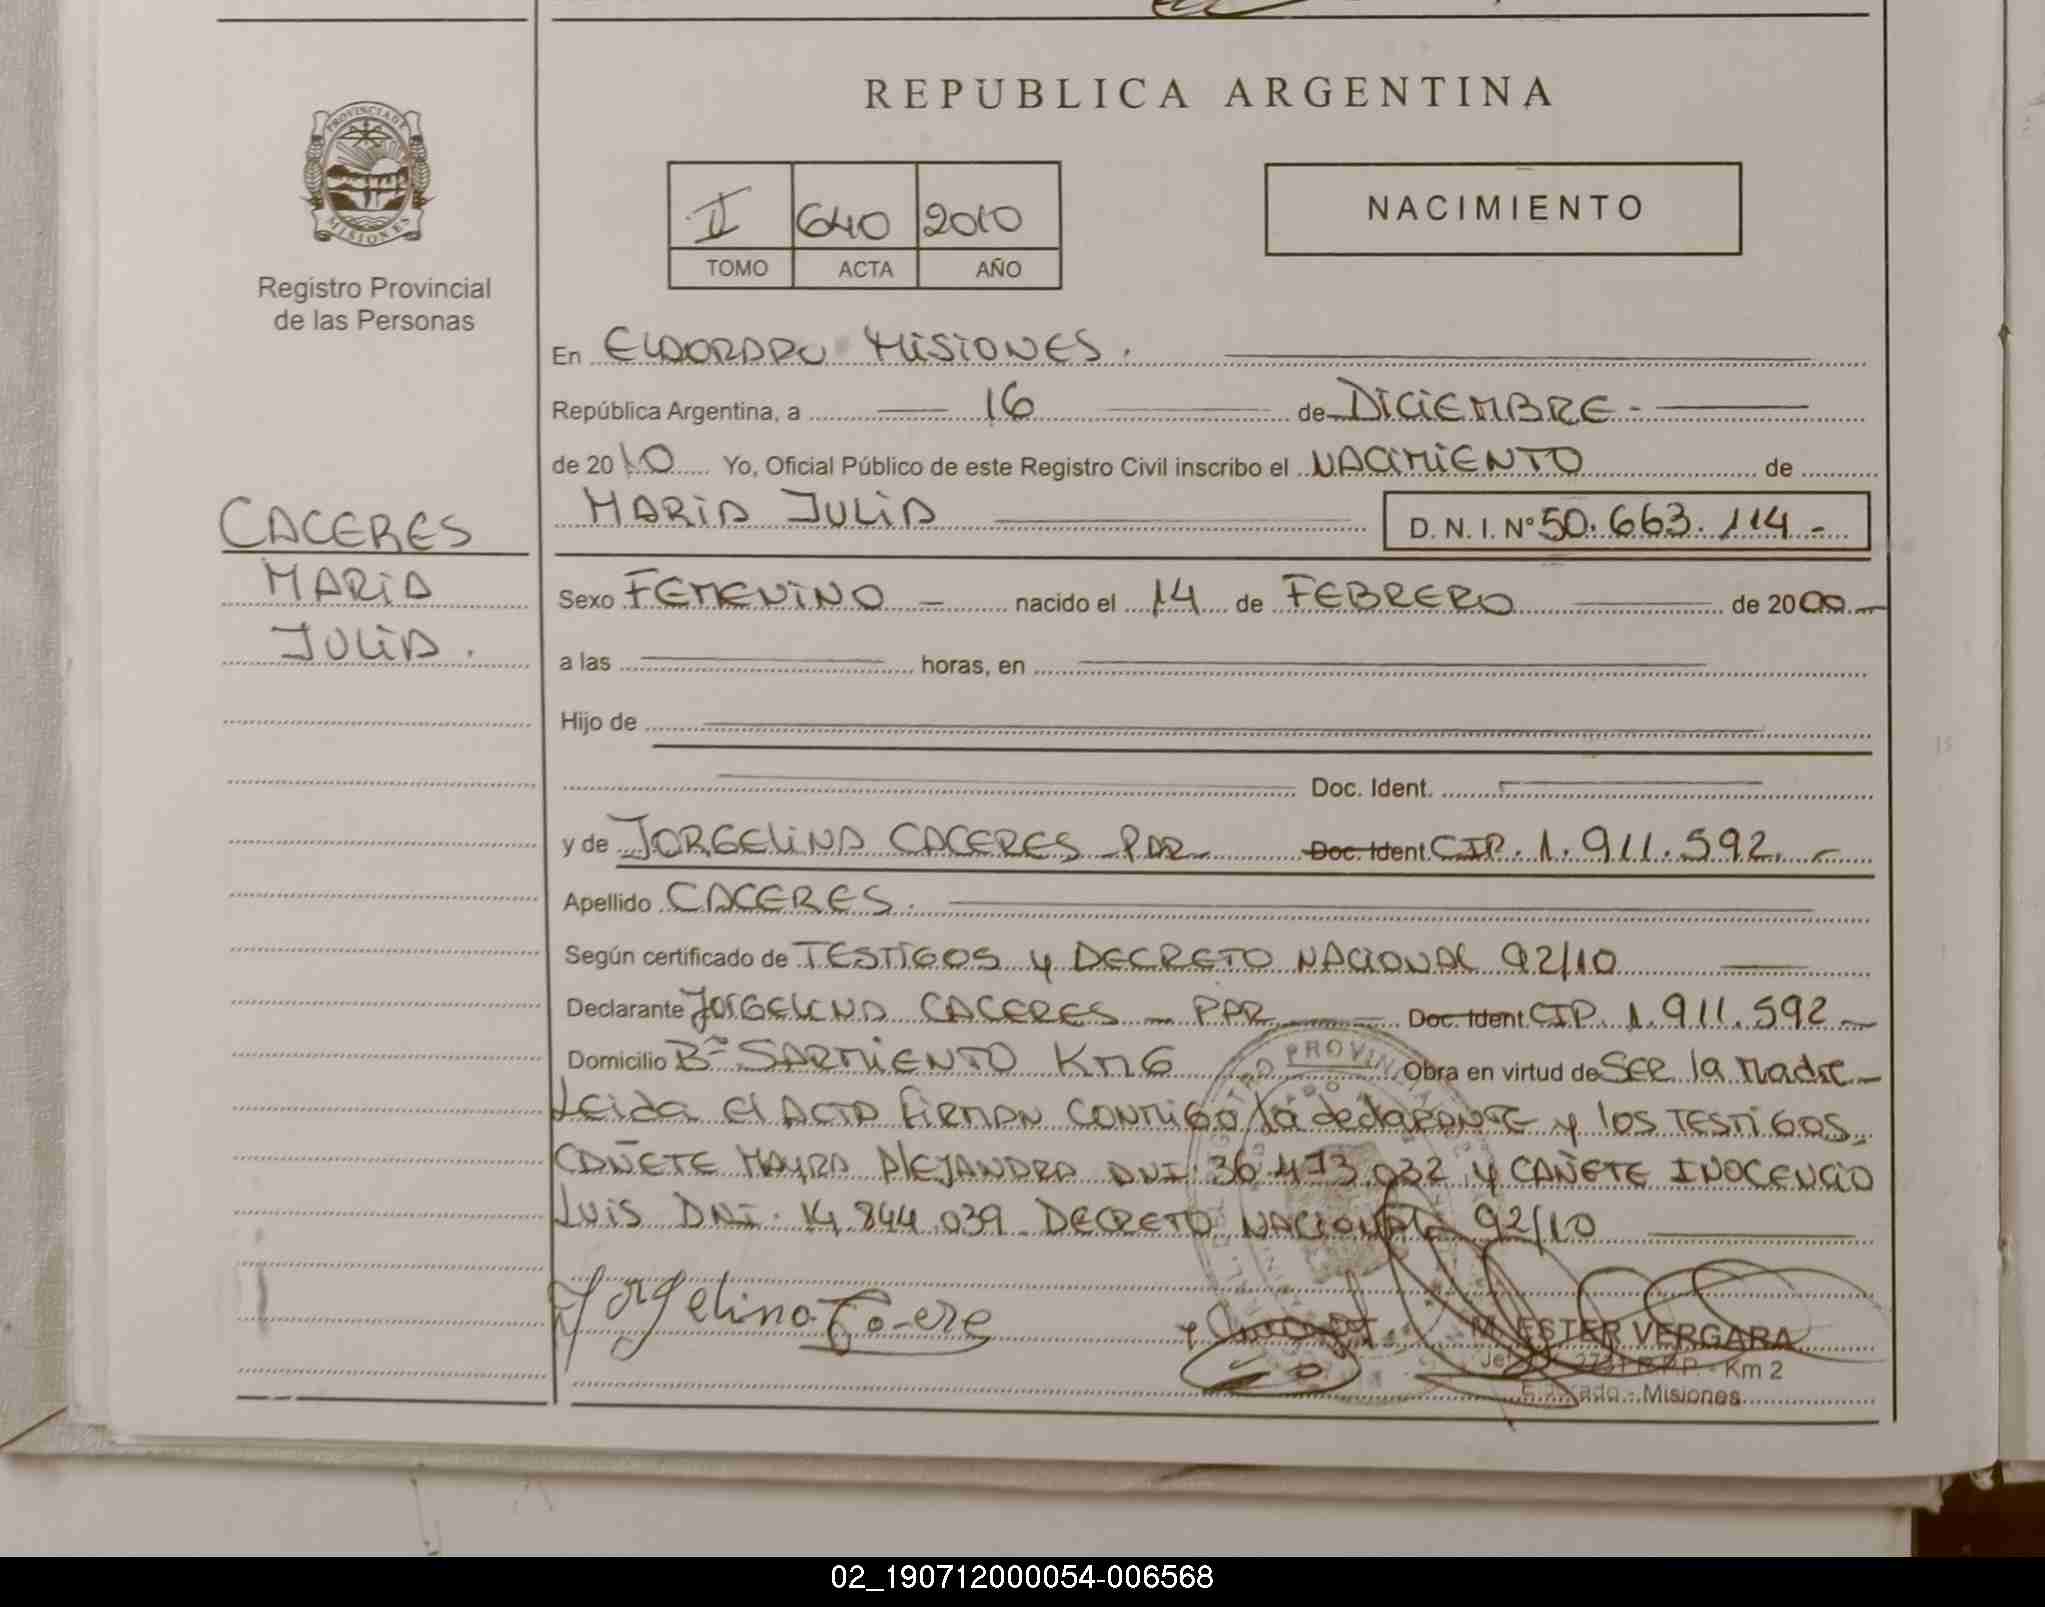 REPUBLICA ARGENTINA
PROVINCIA DE
MISIONES
Registro Provincial
de las Personas
II 640 2010
TOMO ACTA AÑO
NACIMIENTO
En ELDORADO MISIONES.
República Argentina, a 16 de DICIEMBRE -
de 2010 Yo, Oficial Público de este Registro Civil inscribo el NACIMIENTO de
MARIA JULIA D. N. I. Nº 50.663.114 -
CACERES
MARIA
JULIA.
Sexo FEMENINO - nacido el 14 de FEBRERO de 2000 -
a las horas, en
Hijo de
Doc. Ident.
y de JORGELINA CACERES - PAR - Doc. Ident. CIP. 1.911.592. -
Apellido CACERES.
Según certificado de TESTIGOS y DECRETO NACIONAL 92/10
Declarante JORGELINA CACERES - PAR Doc. Ident. CIP. 1.911.592 -
Domicilio Bº SARMIENTO Km 6 Obra en virtud de SER la madre -
Leida el ACTA firman conmigo la declarante y los TESTIGOS
CAÑETE MAYRA ALEJANDRA DNI 36.473.032 y CAÑETE INOCENCIO
LUIS DNI. 14.844.039 - DECRETO NACIONAL 92/10
Jorgelina
M. ESTER VERGARA
Km 2
Eldorado - Misiones
02_190712000054-006568